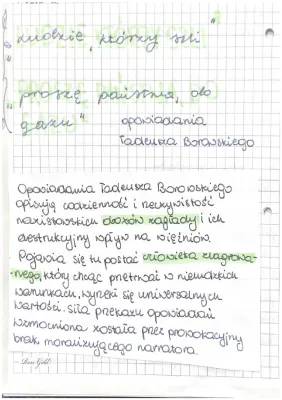 "ludzie, którzy szli"
"proszę państwa, do
gazu" opowiadania
Tadeusza Borowskiego
Opowiadania Tadeusza Borowskiego
opisują codzienność i rzeczywistość
nazistowskich obozów zagłady i ich
destrukcyjny wpływ na więźniów.
Pojawia się tu postać człowieka zlagrowa-
nego, który chcąc przetrwać w nieludzkich
warunkach, wyzbył się uniwersalnych
wartości. Siła przekazu opowiadań
wzmocniona została przez prowokacyjny
brak moralizującego narratora.